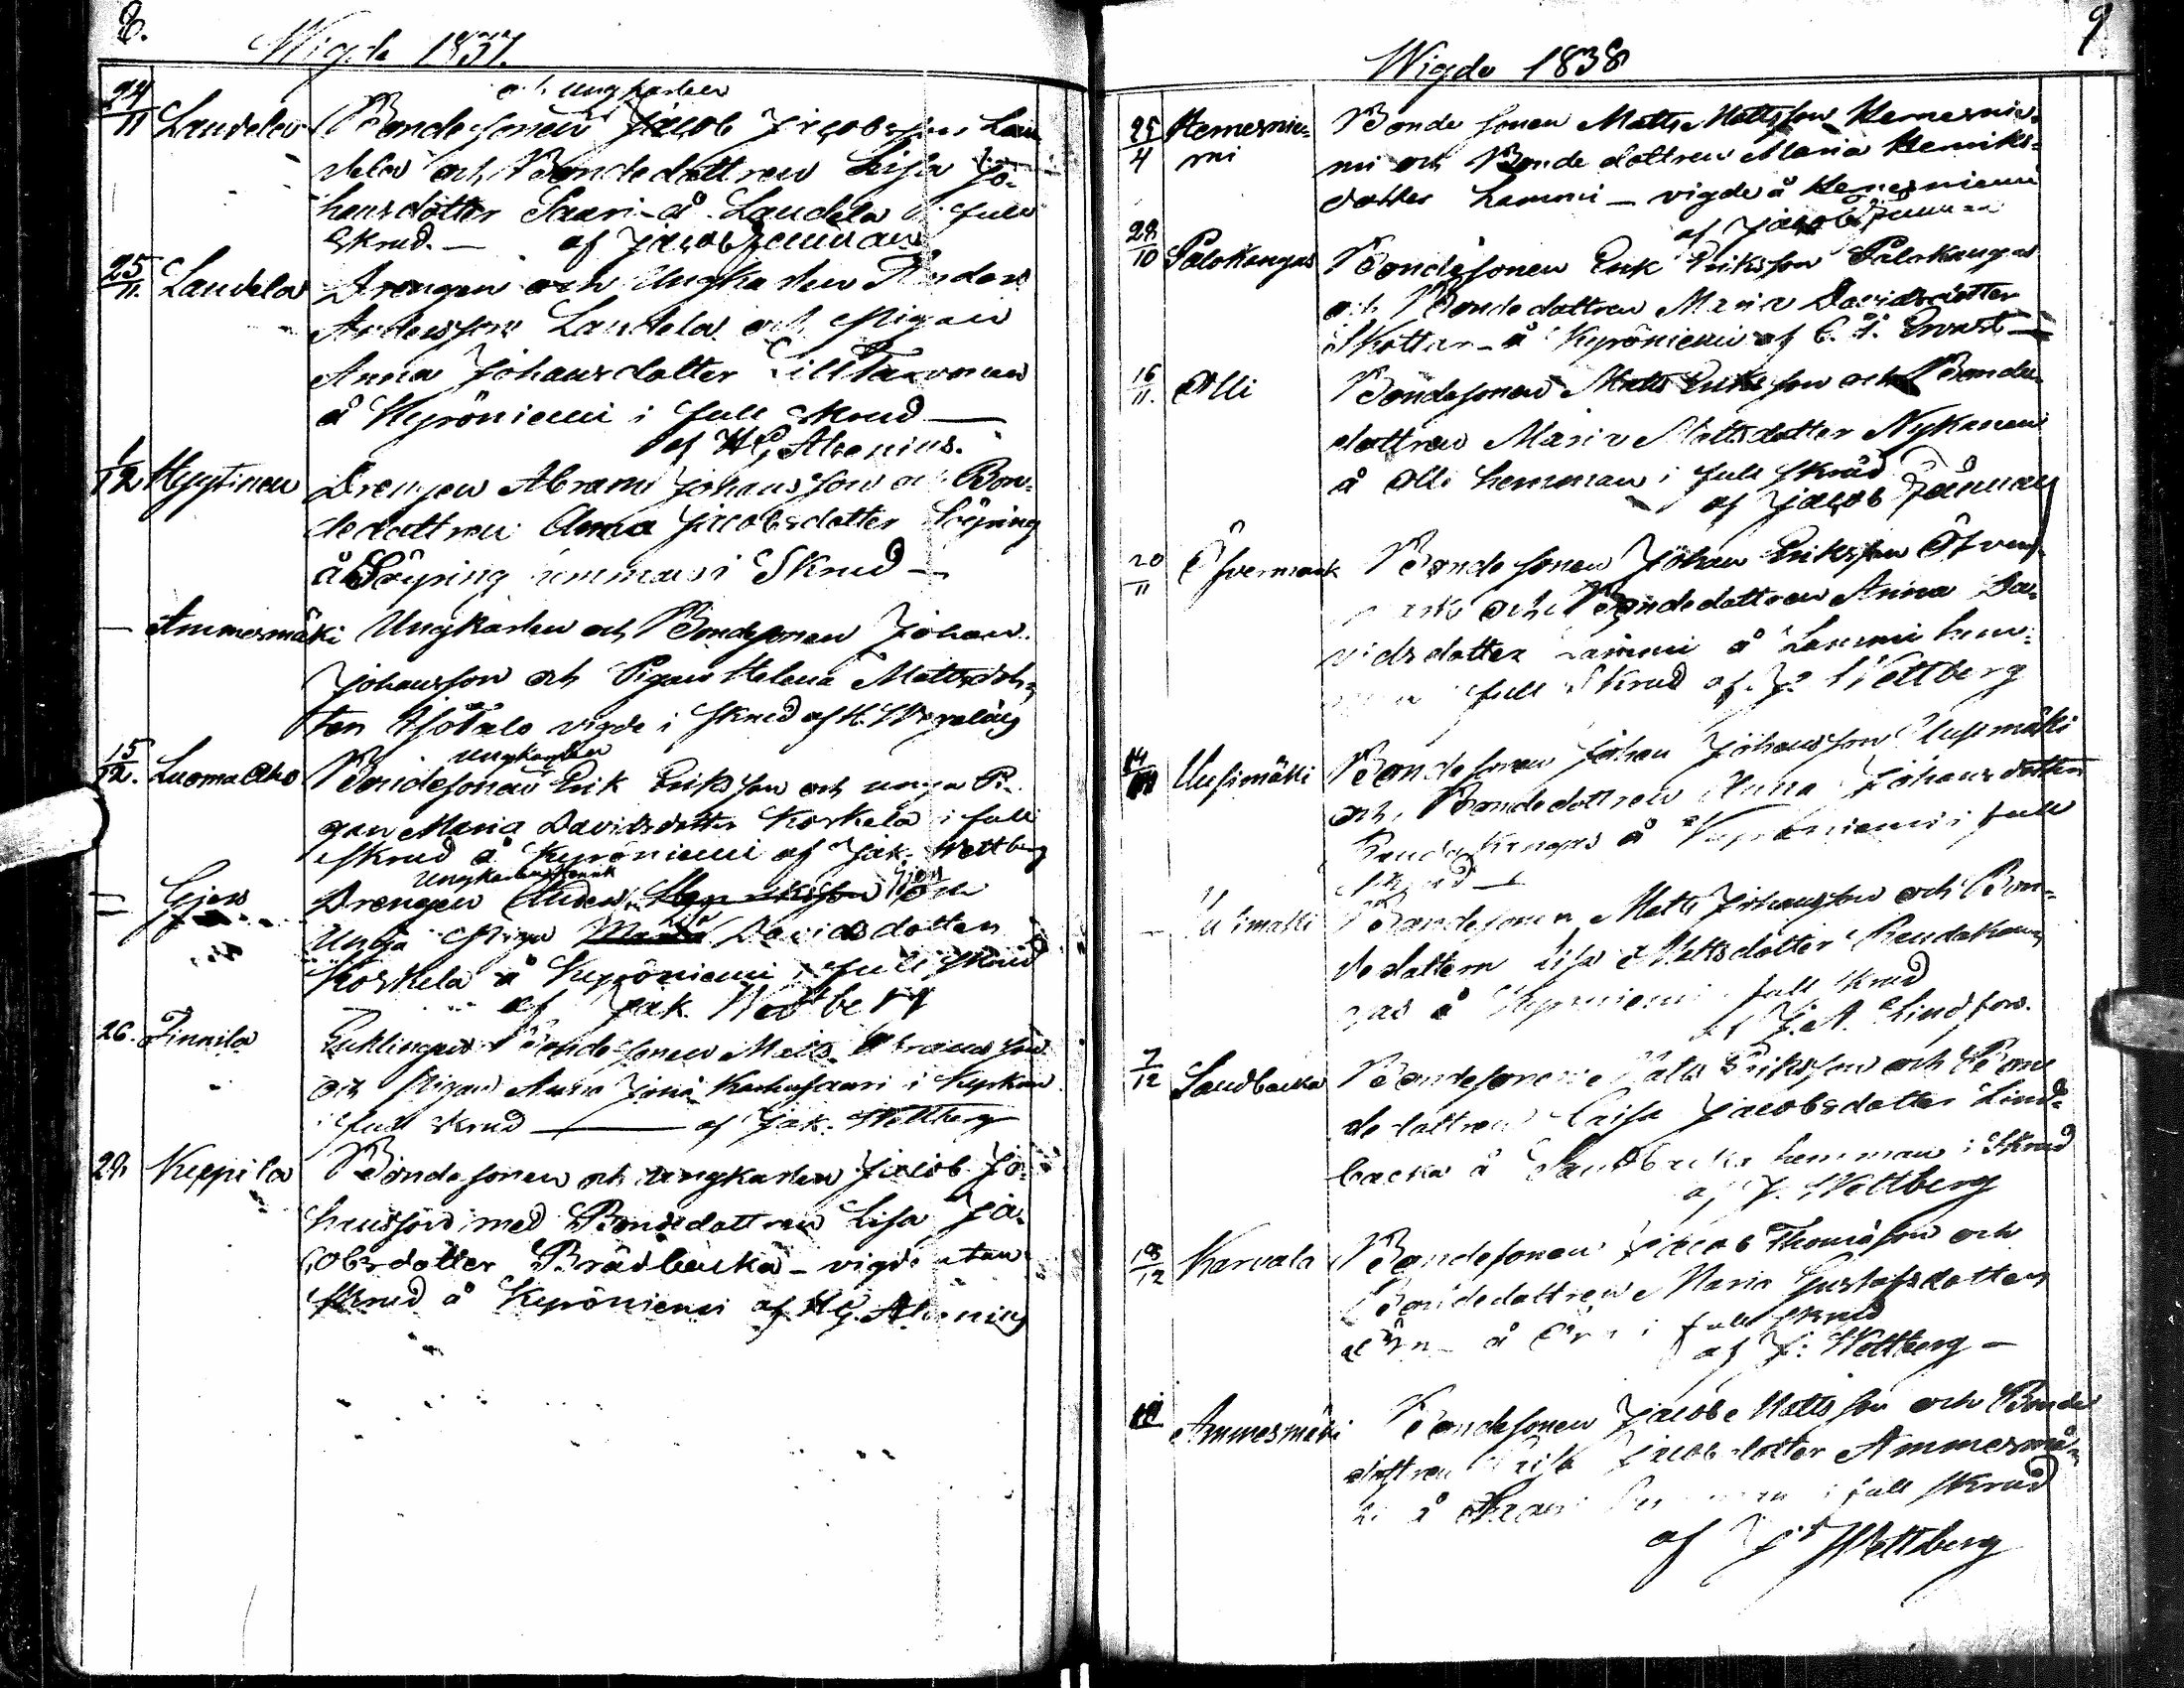 8.
Wigde 1837.
och ungkarlen
24/11 Laudela Bondesonen Jacob Jacobsson Lau
dela och Bondedottren Lisa Jo-
hansdotter Saari - å Laudela i full
Skrud. — af Jacob Jennas
25/11. Laudela Drengen och Ungkarlen Anders
Andersson Laudela och Pigan
Anna Johansdotter Lill
å Kyröniemi i full skrud —
af HG Alcenius.
1/12 Hyytinen Drengen Abram Johansson och Bon-
dedottren Anna Jacobsdotter Löyring
å Löyring hemman i Skrud —
— Ammesmäki Ungkarlen och Bondesonen Johan
Johansson och Pigan Helena Mattsdot-
ter Isotalo vigde i skrud af H.
Ungkarlen
15/12. Luoma Aho Bondesonen Erik Eriksson och unga Pi-
gan Maria Davidsdotter Koskela i full
skrud å Kyröniemi af Jak. Wettberg
Ungkarlen Henrik Gjers
— Gjers Drengen Anders Henriksson och
Lisa
unga Pigan Maria Davidsdotter
Koskela å Kyröniemi i full skrud
af Jak Wettberg
26. Finnila Enklingen Bondesonen Matts Abramsson
och Pigan Maria Karhusaari i Kyrkan
i full skrud — af Jak. Wettberg
28. Keppila Bondesonen och ungkarlen Jacob Jo-
hansson med Bondedottren Lisa Ja-
cobsdotter Brädbacka - vigde utan
skrud å Kyröniemi af HG. Alcenius
9
Wigde 1838
25/4 Hemesnie- Bonde sonen Matts Mattsson Hemesnie-
mi mi och Bonde dottren Maria Henriks-
dotter Lammi — vigde å Hemesniemi
af Jacob
28/10 Palokangas Bondesonen Erik Eriksson Palokangas
och Bondedottren Maria Davidsdotter
Skottar - å Kyröniemi af C. F.
16/11. Olli Bondesonen Matts Eriksson och Bonde-
dottren Maria Mattsdotter Nykänen
å Olli hemman i full skrud
af Jacob
20/11 Öfvermark Bonde sonen Johan Eriksson Öfver-
mark och Bondedottren Anna Da-
vidsdotter Lammi å Lammi hem-
full skrud af J. Wettberg
Uusimäki Bondesonen Johan Johansson Uusimäki
och Bondedottren Anna Johansdotter
å Kyröniemi i full
skrud —
— Uusimäki Bondesonen Matts Johansson och Bon-
dedottern Lisa Mattsdotter Rendakan-
gas å Kyröniemi i full skrud
af J. A. Lindfors.
7/12 Sandbacka Bondesonen Matts Eriksson och Bon
dedottren Caisa Jacobsdotter Lind-
backa å Sandbacka hemman i Skrud
af J. Wettberg
18/12 Karvala Bondesonen Jacob Thomasson och
Bondedottren Maria Gustafsdotter
Örn - å Örn i full skrud
af J: Wettberg —
Ammesmäki Bondesonen Jacob Mattsson och Bonde
dottren Caisa Jacobsdotter Ammesmä-
ki å i full skrud
af J Wettberg